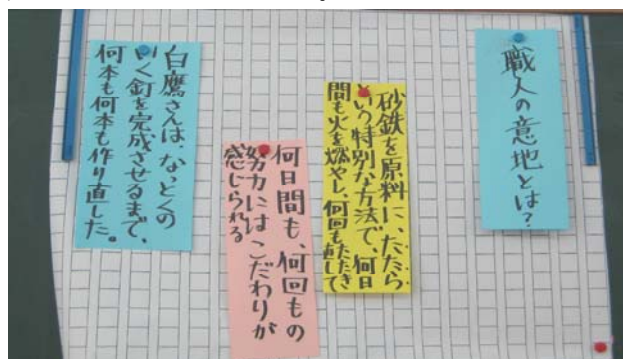 職人の意地とは?
砂鉄を原料に、たたら
という特別な方法で、何日
間も火を燃やし、何回もたたき直して
何日間も、何回もの
努力にはこだわりが
感じられる
白鷹さんは、なっとくの
いく釘を完成させるまで、
何本も何本も作り直した。